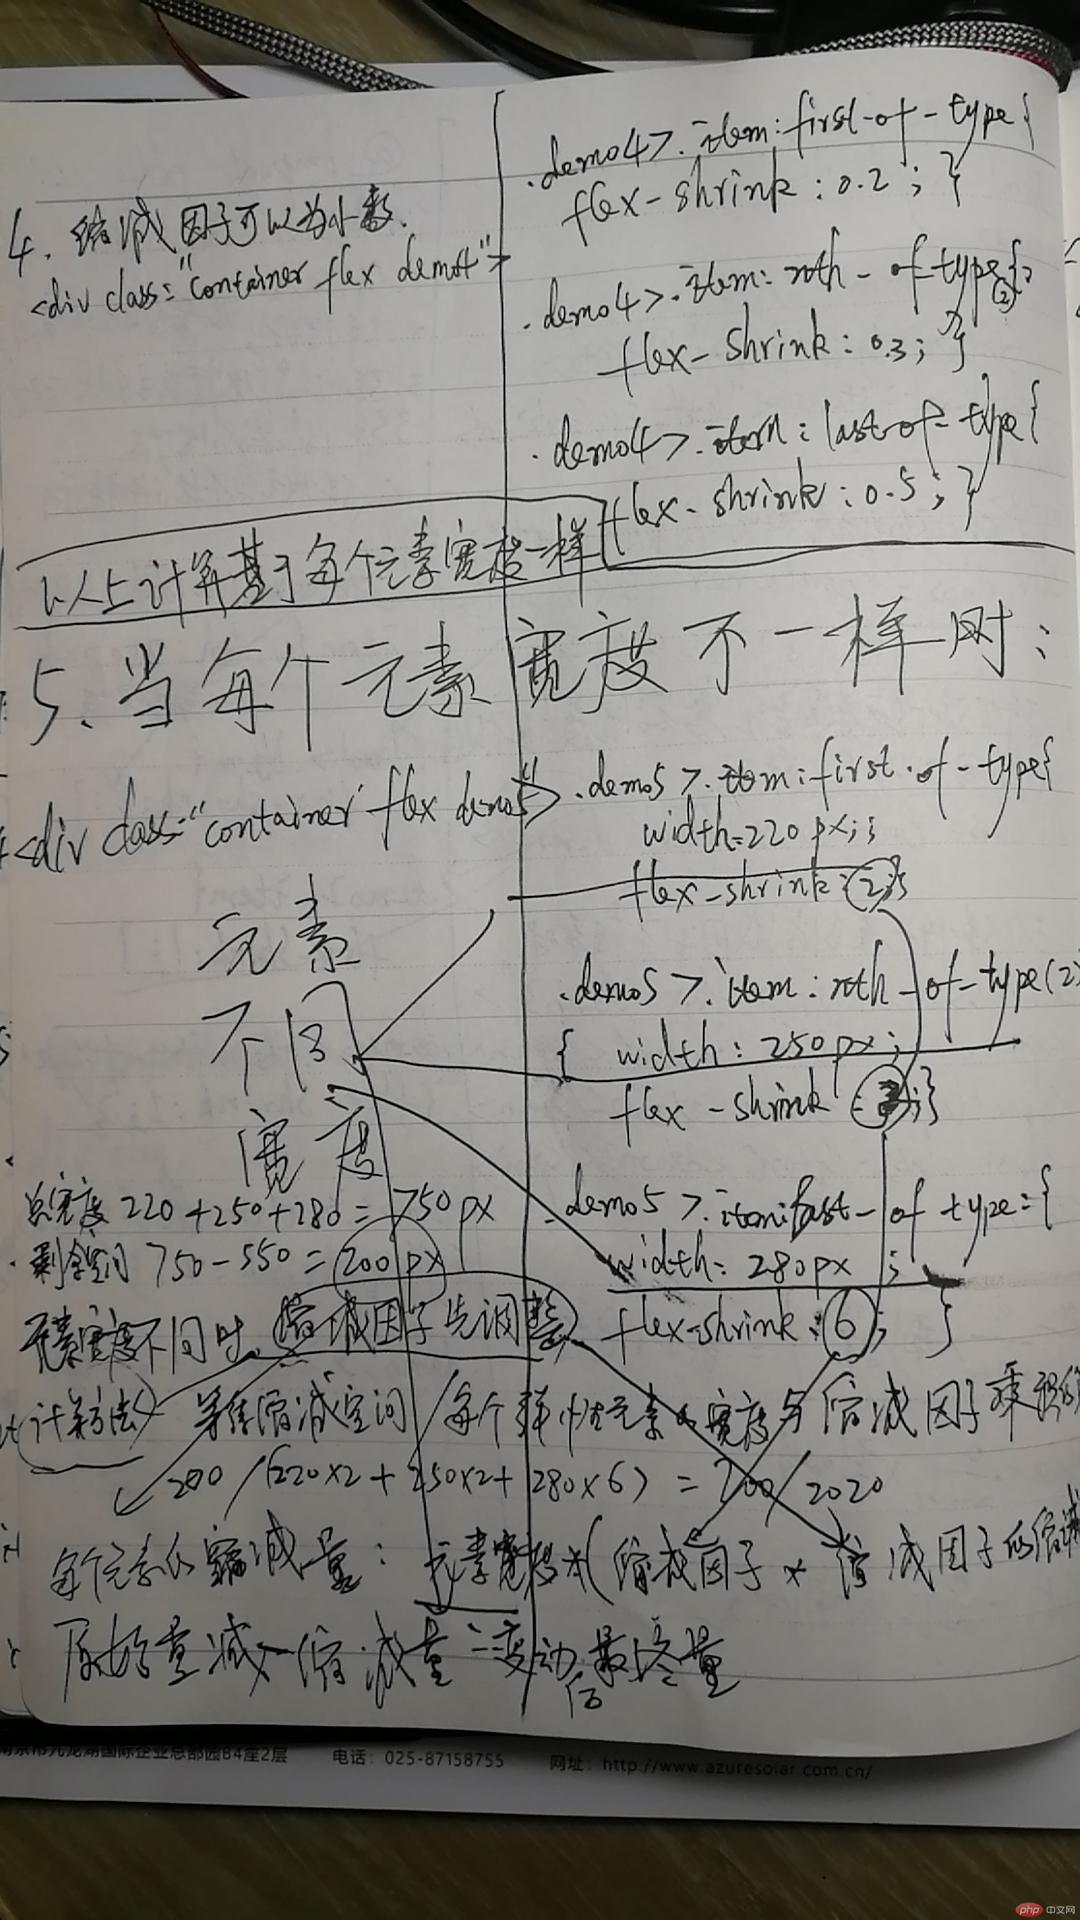 4. 缩减因子可以为小数.
<div class="container flex demo4">
.demo4>.item:first-of-type{
flex-shrink:0.2;}
.demo4>.item:nth-of-type(2){
flex-shrink:0.3;}
.demo4>.item:last-of-type{
flex-shrink:0.5;}
以上计算基于每个元素宽度一样
5. 当每个元素宽度不一样时:
<div class="container flex demo5">
.demo5>.item:first-of-type{
width=220px;;
flex-shrink:2;}
.demo5>.item:nth-of-type(2)
{ width:250px;
flex-shrink:
;}
.demo5>.item:last-of type={
width:280px;
flex-shrink:6; }
元素
不同
宽度
总宽度 220+250+280=750px
剩余空间 750-550=200px
元素宽度不同时,缩减因子先调整
计算方法 缩减空间/每个弹性元素的宽度与缩减因子乘积
200/(220×2+250×2+280×6)=200/2020
每个元素的缩减量:元素宽度*(缩减因子*缩减因子的缩减
原始量减-缩减量=变动后最终量
南京市九龙湖国际企业总部园B4座2层
电话: 025-87158755
网址: http://www.azuresolar.com.cn/
php 中文网